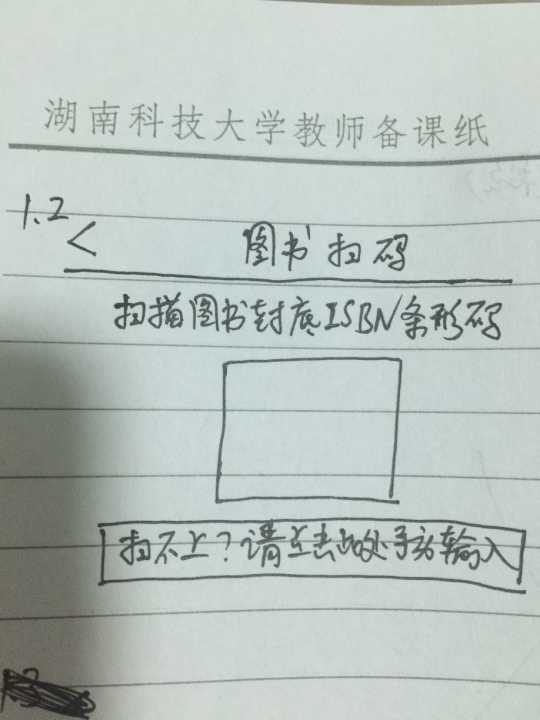 湖南科技大学教师备课纸
1.2
< 图书扫码
扫描图书封底ISBN条形码
扫不上?请点击此处手动输入